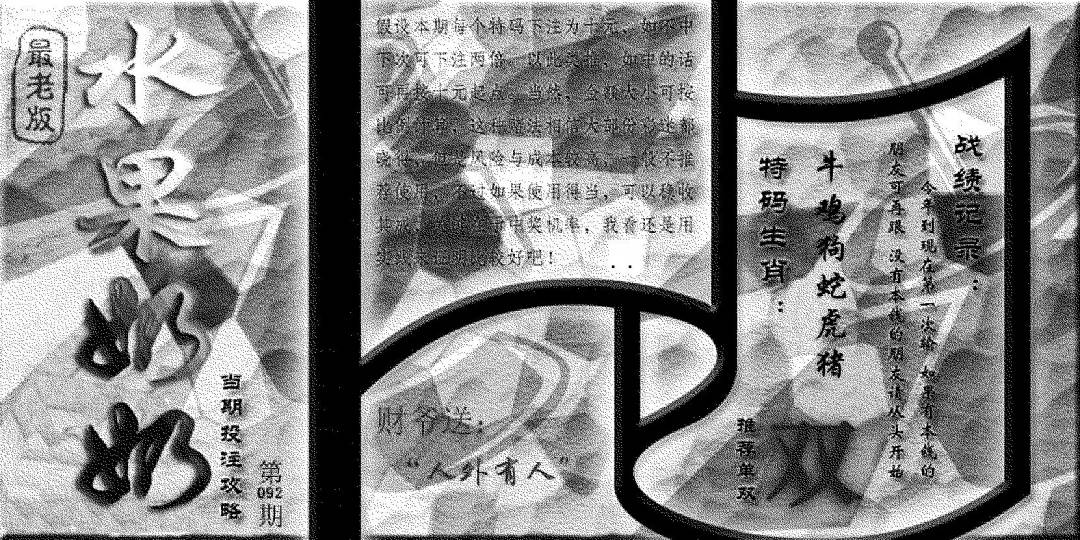 最老版
水果奶奶
当期投注攻略
第
092
期
假设本期每个特码下注为十元，如不中
下次可下注两倍，以此类推，如中的话
可再按十元起点。当然，金额大小可按
比例计算，这种赌法相信大部份
风险与成本较高，一般不推
荐使用，不过如果使用得当，可以稳收
中奖机率，我看还是用
较好吧！
财爷送：
“人外有人”
战绩记录：
今年到现在第一次输 如果有本钱的
朋友可再跟 没有本钱的朋友请从头开始
牛鸡狗蛇虎猪
特码生肖：
推荐单双
双